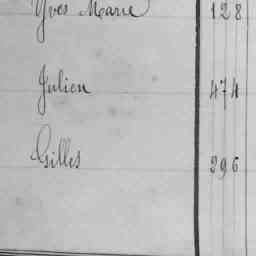 Yves Marie 128
Julien 474
Gilles 296